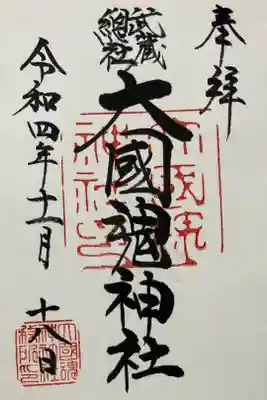 奉拝
武蔵
總社
大國魂神社
令和四年十一月
十八日